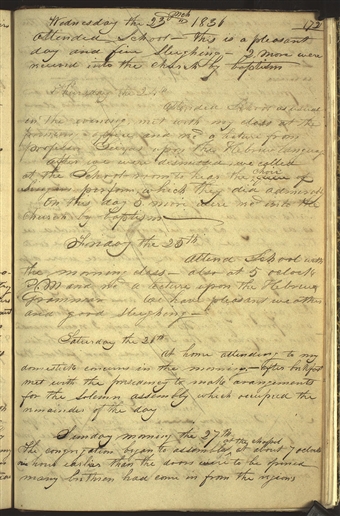 Wednesday the 23d Mch 1836 172
Attended School - this is a pleasant
day and fine Sleighing - 2 more were
received into the church by baptism
Thursday the 24th
Attended School as usual
in the evening met with my class at the
upon the Hebrew language
After we were dismissed we called
at the School room to hear the choir of
Singers perform, which they did admirably
On this day 5 more were recd into the
Church by baptism
Friday the 25th
Attend School with
the morning class - also at 5 oclock
P.M and recd a lecture upon the Hebrew
Grammar - We have pleasant weather
and good sleighing -
Saturday the 26th
At home attending to my
domestick concerns in the morning. - after brekfast
met with the presidency to make arangements
for the solemn assembly which occupied the
remainder of the day
Sunday morning the 27th
The congregation began to assemble at the chapel at about 7 oclock
an hour earlier than the doors were to be opened
many brethren had come in from the regions